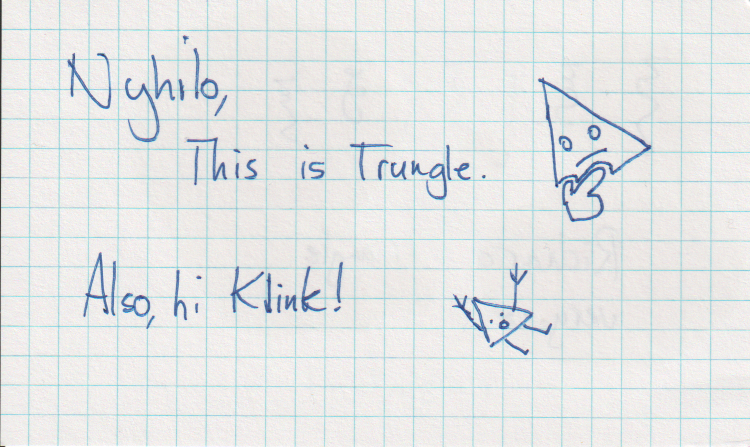 Nyhilo,
This is Trungle.
Also, hi Klink!